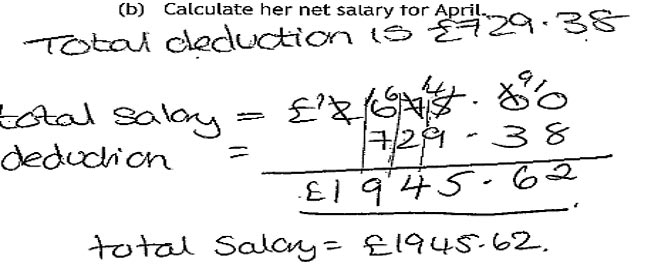 (b) Calculate her net salary for April.
Total deduction is £729.38
total salary = £2675.00
deduction = 729.38
£1945.62
total salary = £1945.62.